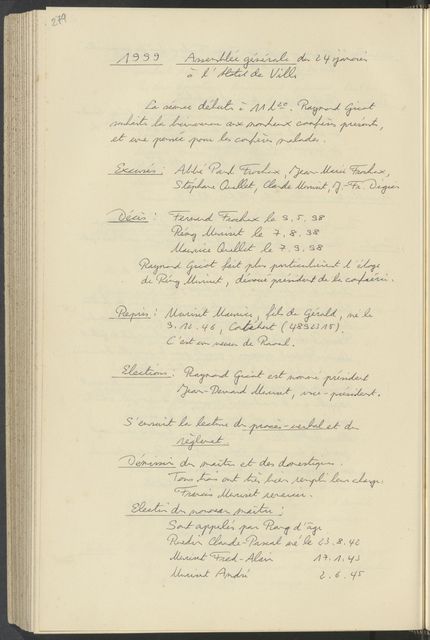 279
1999 Assemblée générale du 24 janvier
à l'Hôtel de Ville
La séance débute à 11h20. Raymond Guiot
souhaite la bienvenue aux nombreux confrères présents,
et une pensée pour les confrères malades.
Excusés : Abbé Paul Frochaux, Jean-Marie Frochaux,
Stéphane Quellet, Claude Muriset, J-Fr. Digier
Décès : Fernand Frochaux le 9.5.98
Rémy Muriset le 7.8.98
Maurice Quellet le 7.9.98
Raymond Guiot fait plus particulièrement l'éloge
de Rémy Muriset, dévoué président de la confrérie.
Repris : Muriset Maurice, fils de Gérald, né le
9.12.46,
C'est un neveu de Raoul.
Elections : Raymond Guiot est nommé président
Jean-Bernard Muriset, vice-président.
S'ensuit la lecture du procès-verbal et du
règlement.
Démission du maître et des domestiques.
Tous trois ont très bien rempli leur charge.
Francis Muriset remercie.
Election du nouveau maître :
Sont appelés par Rang d'âge
Ruedin Claude-Pascal né le 23.8.42
Muriset Fred-Alain 17.1.43
Muriset André 2.6.45